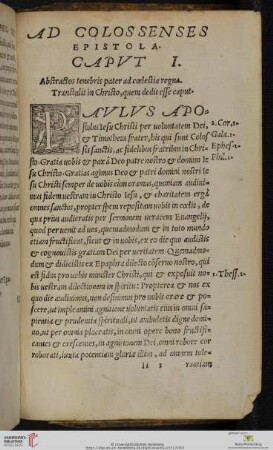 AD COLOSSENSES
EPISTOLA.
CAPVT I.
Abstractos tenebris pater ad cœlestia regna
Transtulit in Christo, quem dedit esse caput.
PAVLVS APO-
stolus Iesu Christi per voluntatem Dei,
& Timotheus frater, his qui sunt Colos
sis sanctis, ac fidelibus fratribus in Chri
sto. Gratia vobis & pax à Deo patre nostro & domino Ie
su Christo. Gratias agimus Deo & patri domini nostri Ie
su Christi semper de vobis cum oramus, quoniam audiui-
mus fidem vestram in Christo Iesu, & charitatem erga
omnes sanctos, propter spem repositam vobis in cœlis, de
qua prius audieratis per sermonem veracem Euangelij,
quod peruenit ad vos, quemadmodum & in toto mundo
etiam fructificat, sicut & in vobis, ex eo die quo audistis
& cognouistis gratiam Dei per veritatem. Quemadmo-
dum & didicistis ex Epaphra dilecto conseruo nostro, qui
est fidus pro vobis minister Christi, qui & exposuit no-
bis vestram dilectionem in spiritu: Propterea & nos ex
quo die audiuimus, non desinimus pro vobis orare & po-
scere, ut impleamini agnitione voluntatis eius in omni sa-
pientia & prudentia spirituali, ut ambuletis digne domi-
no, ut per omnia placeatis, in omni opere bono fructifi-
cantes & crescentes, in agnitionem Dei, omni robore cor
roborati, iuxta potentiam gloriæ illius, ad omnem tole-
li 2 rantiam
1. Cor. 1.
Gala. 1.
Ephes. 1.
Phil. 1.
1. Thess. 1.
© Universitätsbibliothek Heidelberg